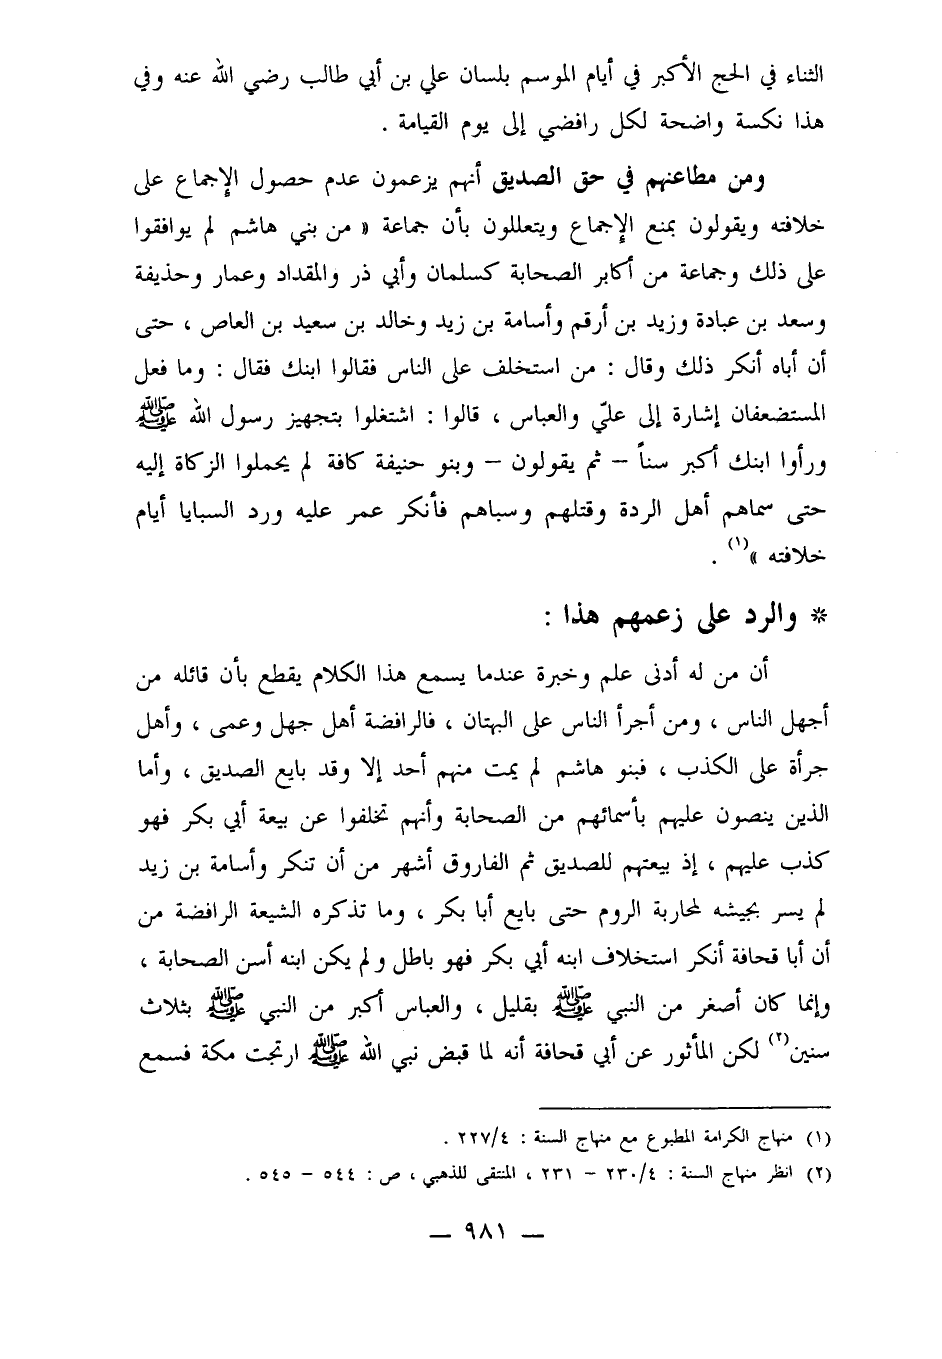 الثناء في الحج الأكبر في أيام الموسم بلسان علي بن أبي طالب رضي الله عنه وفي
هذا نكسة واضحة لكل رافضي إلى يوم القيامة .
ومن مطاعنهم في حق الصديق أنهم يزعمون عدم حصول الإجماع على
خلافته ويقولون بمنع الإجماع ويتعللون بأن جماعة « من بني هاشم لم يوافقوا
على ذلك وجماعة من أكابر الصحابة كسلمان وأبي ذر والمقداد وعمار وحذيفة
وسعد بن عبادة وزيد بن أرقم وأسامة بن زيد وخالد بن سعيد بن العاص ، حتى
أن أباه أنكر ذلك وقال : من استخلف على الناس فقالوا ابنك فقال : وما فعل
المستضعفان إشارة إلى عليّ والعباس ، قالوا : اشتغلوا بتجهيز رسول الله ﷺ
ورأوا ابنك أكبر سناً – ثم يقولون – وبنو حنيفة كافة لم يحملوا الزكاة إليه
حتى سماهم أهل الردة وقتلهم وسباهم فأنكر عمر عليه ورد السبايا أيام
خلافته »(١) .
* والرد على زعمهم هذا :
أن من له أدنى علم وخبرة عندما يسمع هذا الكلام يقطع بأن قائله من
أجهل الناس ، ومن أجرأ الناس على البهتان ، فالرافضة أهل جهل وعمى ، وأهل
جرأة على الكذب ، فبنو هاشم لم يمت منهم أحد إلا وقد بايع الصديق ، وأما
الذين ينصون عليهم بأسمائهم من الصحابة وأنهم تخلفوا عن بيعة أبي بكر فهو
كذب عليهم ، إذ بيعتهم للصديق ثم الفاروق أشهر من أن تنكر وأسامة بن زيد
لم يسر بجيشه لمحاربة الروم حتى بايع أبا بكر ، وما تذكره الشيعة الرافضة من
أن أبا قحافة أنكر استخلاف ابنه أبي بكر فهو باطل ولم يكن ابنه أسن الصحابة ،
وإنما كان أصغر من النبي ﷺ بقليل ، والعباس أكبر من النبي ﷺ بثلاث
سنين(٢) لكن المأثور عن أبي قحافة أنه لما قبض نبي الله ﷺ ارتجت مكة فسمع
(١) منهاج الكرامة المطبوع مع منهاج السنة : ٢٢٧/٤ .
(٢) انظر منهاج السنة : ٢٣٠/٤ – ٢٣١ ، المنتقى للذهبي ، ص : ٥٤٤ – ٥٤٥ .
— ٩٨١ —